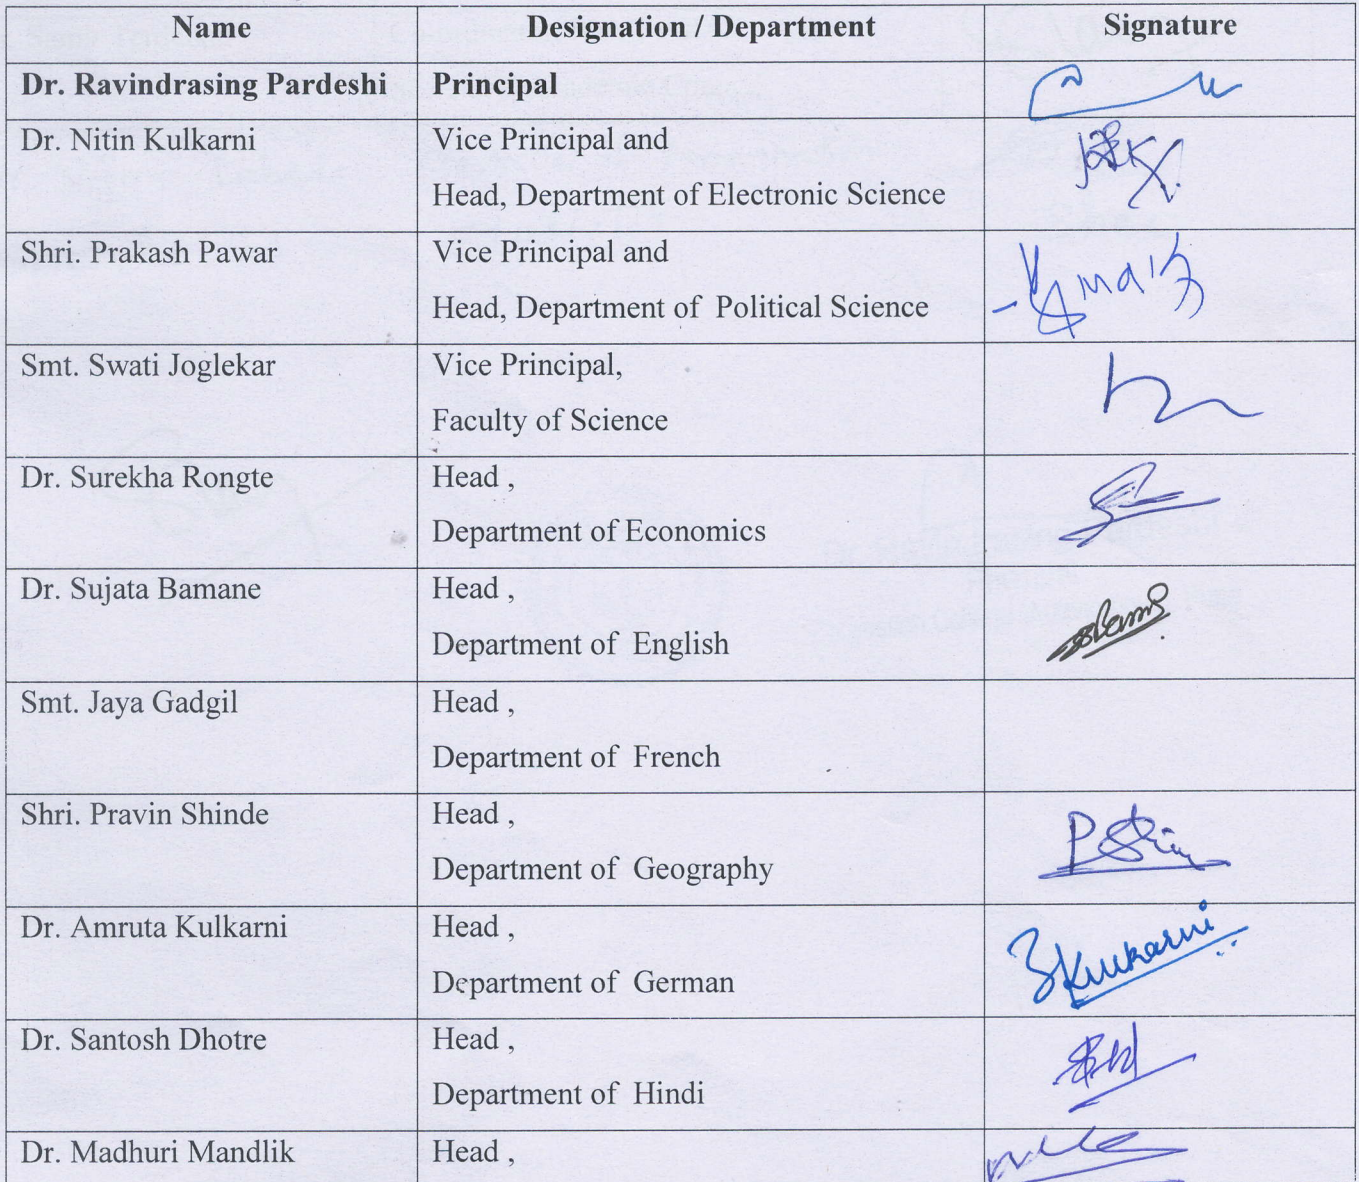 Name Designation / Department Signature
Dr. Ravindrasing Pardeshi Principal
Dr. Nitin Kulkarni Vice Principal and
Head, Department of Electronic Science
Shri. Prakash Pawar Vice Principal and
Head, Department of Political Science
Smt. Swati Joglekar Vice Principal,
Faculty of Science
Dr. Surekha Rongte Head ,
Department of Economics
Dr. Sujata Bamane Head ,
Department of English
Smt. Jaya Gadgil Head ,
Department of French
Shri. Pravin Shinde Head ,
Department of Geography
Dr. Amruta Kulkarni Head ,
Department of German
Dr. Santosh Dhotre Head ,
Department of Hindi
Dr. Madhuri Mandlik Head ,